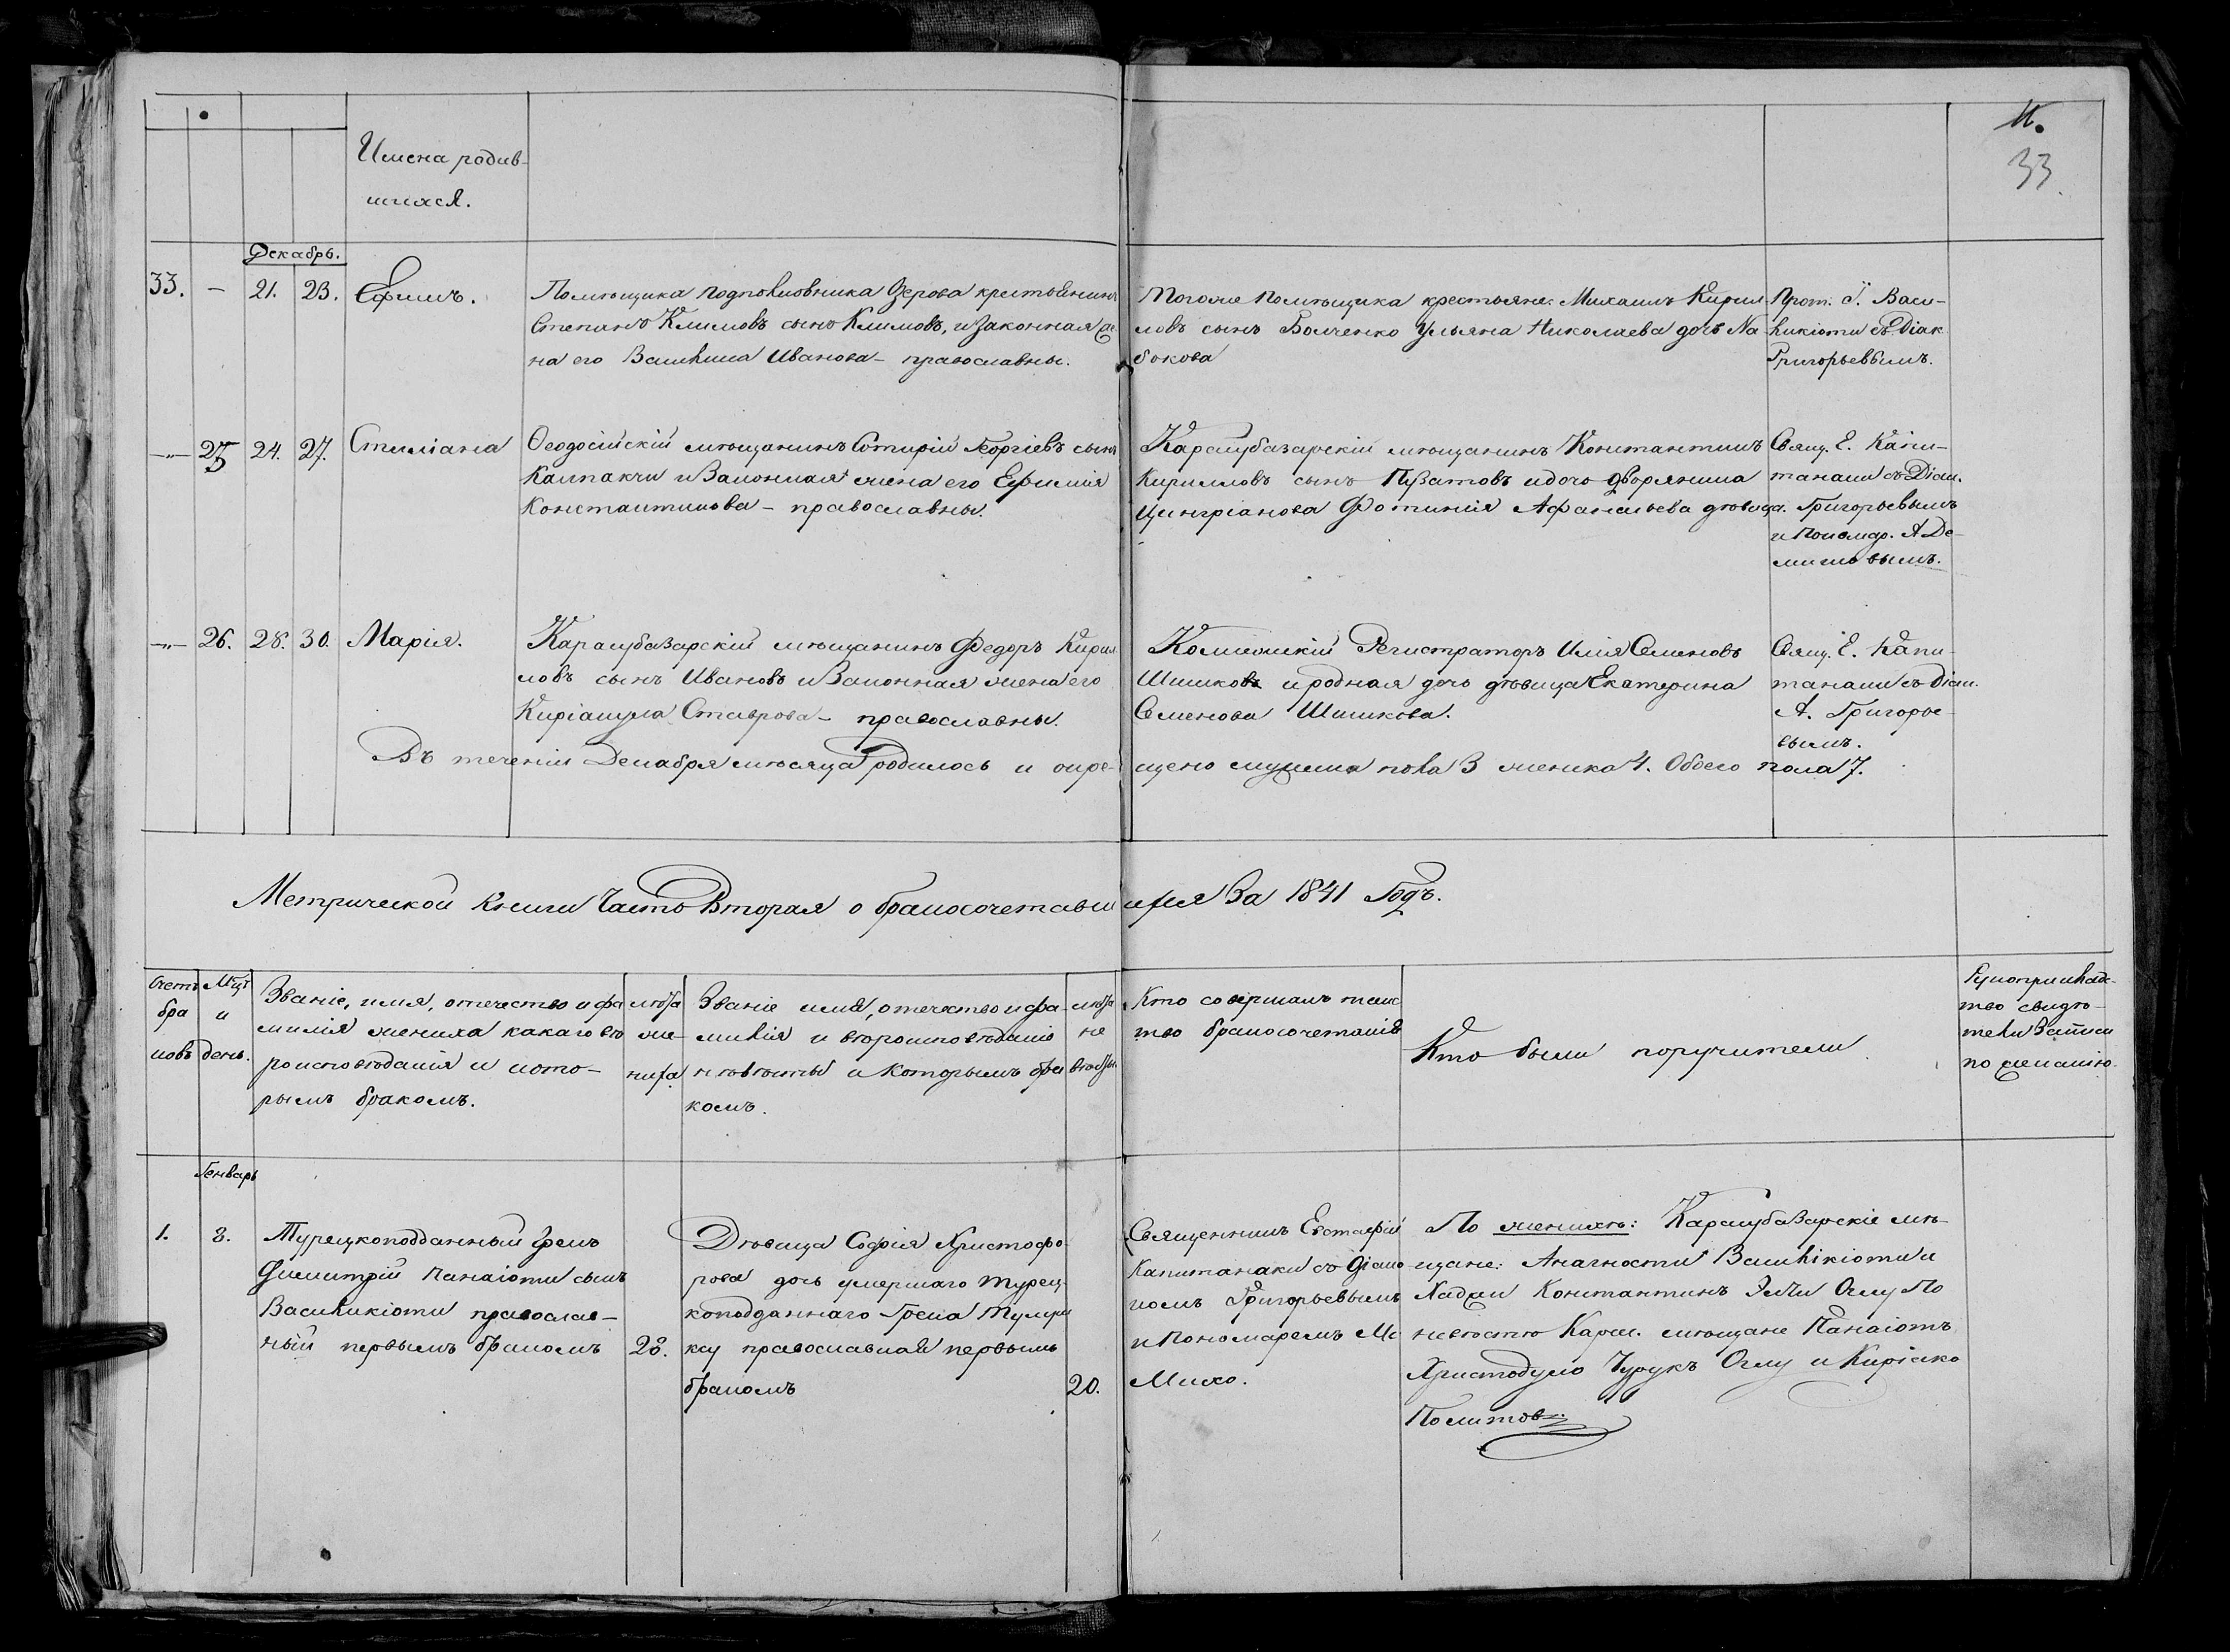 11.
33
Имена родив-
шихся.
Декабрь.
33. - 21. 23. Ефимъ.
Помѣщика подполковника крестьянинъ
Степанъ Климовъ сынъ Климовъ, и законная же-
на его Иванова - православны.
Тогоже помѣщика крестьяне: Михаилъ Кирил-
ловъ сынъ Ульяна Николаева дочь
бокова
Прот. І. Васи-
ликіоти съ Діак
Григорьевымъ.
-"- 25 24. 27. Стиліана
Ѳеодосійскій мѣщанинъ Сотирій Георгіевъ сынъ
Калпакчи и законная жена его Ефимія
Константинова - православны.
Карасубазарскій мѣщанинъ Константинъ
Кирилловъ сынъ Пузатовъ и дочь дворянина
Фотинія Афанасьева дѣвица.
Свящ. Е. Капи-
танаки съ Діак.
Григорьевымъ
и Пономар. А Де-
вымъ.
-"- 26. 28. 30. Марія.
Карасубазарскій мѣщанинъ Федоръ Кирил
ловъ сынъ Ивановъ и законная жена его
Киріакула Ставрова - православны.
Коллежскій Регистраторъ Илія Семеновъ
Шишковъ и родная дочь дѣвица Екатерина
Семенова Шишкова.
Свящ. Е. Капи-
танаки съ Діак.
А. Григорье-
вымъ.
Въ теченіи Декабря мѣсяца родилось и окре-щено мужеска пола 3 женска 4. Обоего пола 7.
Метрической книги Часть Вторая о бракосочетавшихся за 1841 Годъ.
Счетъ
бра
ковъ
Мцъ
и
день.
Званіе, имя, отечество и фа
милія жениха какаго вѣ
роисповѣданія и кото-
рымъ бракомъ.
лѣта
же-
ниха
Званіе имя, отечество и фа-
милія и вѣроисповѣданіе
невѣсты и которымъ бра
комъ.
лѣта
не
вѣсты
Кто совершалъ таинс
тво бракосочетанія
Кто были поручители
Рукоприклад-
тво свидѣ-
тели записи
по желанію.
Генварь
1. 8.
Турецкоподданный Грекъ
Димитрій Панаіоти сынъ
Василикіоти православ-
ный первымъ бракомъ 28.
Дѣвица Софія Христофо
рова дочь умершаго турец-
коподданнаго Грека
православная первымъ
бракомъ 20.
Священникъ Евстафій
Капитанаки съ Діако-
номъ Григорьевымъ
и Пономаремъ
По женихѣ: Карасубазарскіе мѣ-
щане: Анагности Василикіоти и
Хаджи Константинъ Оглу По
невѣстѣ Карас. мѣщане Панаіотъ
Христодуло Чурукъ Оглу и Киріако
Политовъ.